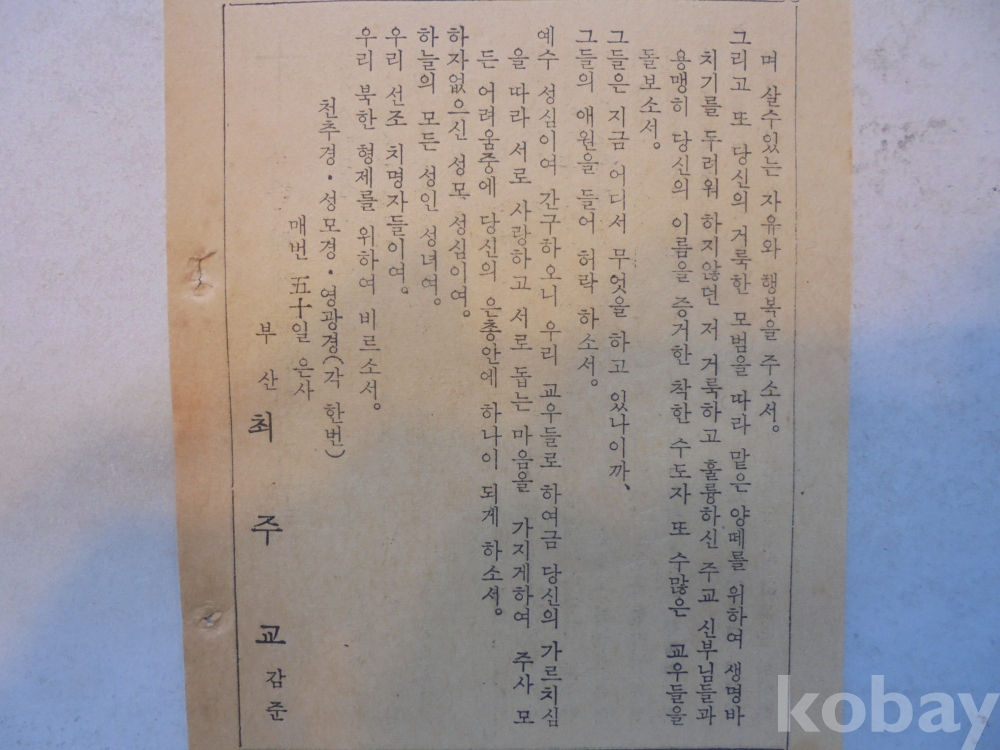 며 살수있는 자유와 행복을 주소서。
그리고 또 당신의 거룩한 모범을 따라 맡은 양떼를 위하여 생명바
치기를 두려워 하지않던 저 거룩하고 훌륭하신 주교 신부님들과
용맹히 당신의 이름을 증거한 착한 수도자 또 수많은 교우들을
돌보소서。
그들은 지금 어디서 무엇을 하고 있나이까、
그들의 애원을 들어 허락 하소서。
예수 성심이여 간구하오니 우리 교우들로 하여금 당신의 가르치심
을 따라 서로 사랑하고 서로 돕는 마음을 가지게하여 주사 모
든 어려움중에 당신의 은총안에 하나이 되게 하소서。
하자없으신 성모 성심이여。
하늘의 모든 성인 성녀여。
우리 선조 치명자들이여。
우리 북한 형제를 위하여 비르소서。
천추경・성모경・영광경(각 한번)
매번 五十일 은사
부산 최 주 교 감준
kobay